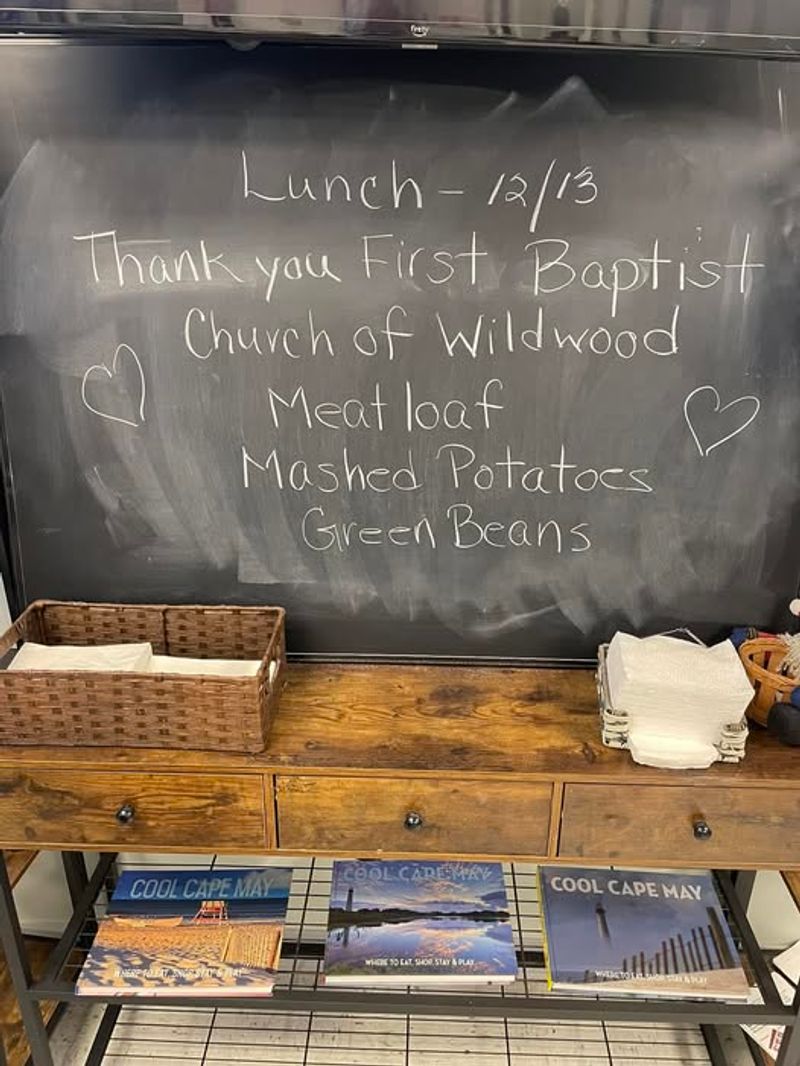 fire tv
Lunch - 12/13
Thank you First Baptist
Church of Wildwood
Meatloaf
Mashed Potatoes
Green Beans
COOL CAPE MAY
WHERE TO EAT, SHOP, STAY & PLAY
COOL CAPE MAY
WHERE TO EAT, SHOP, STAY & PLAY
COOL CAPE MAY
WHERE TO EAT, SHOP, STAY & PLAY